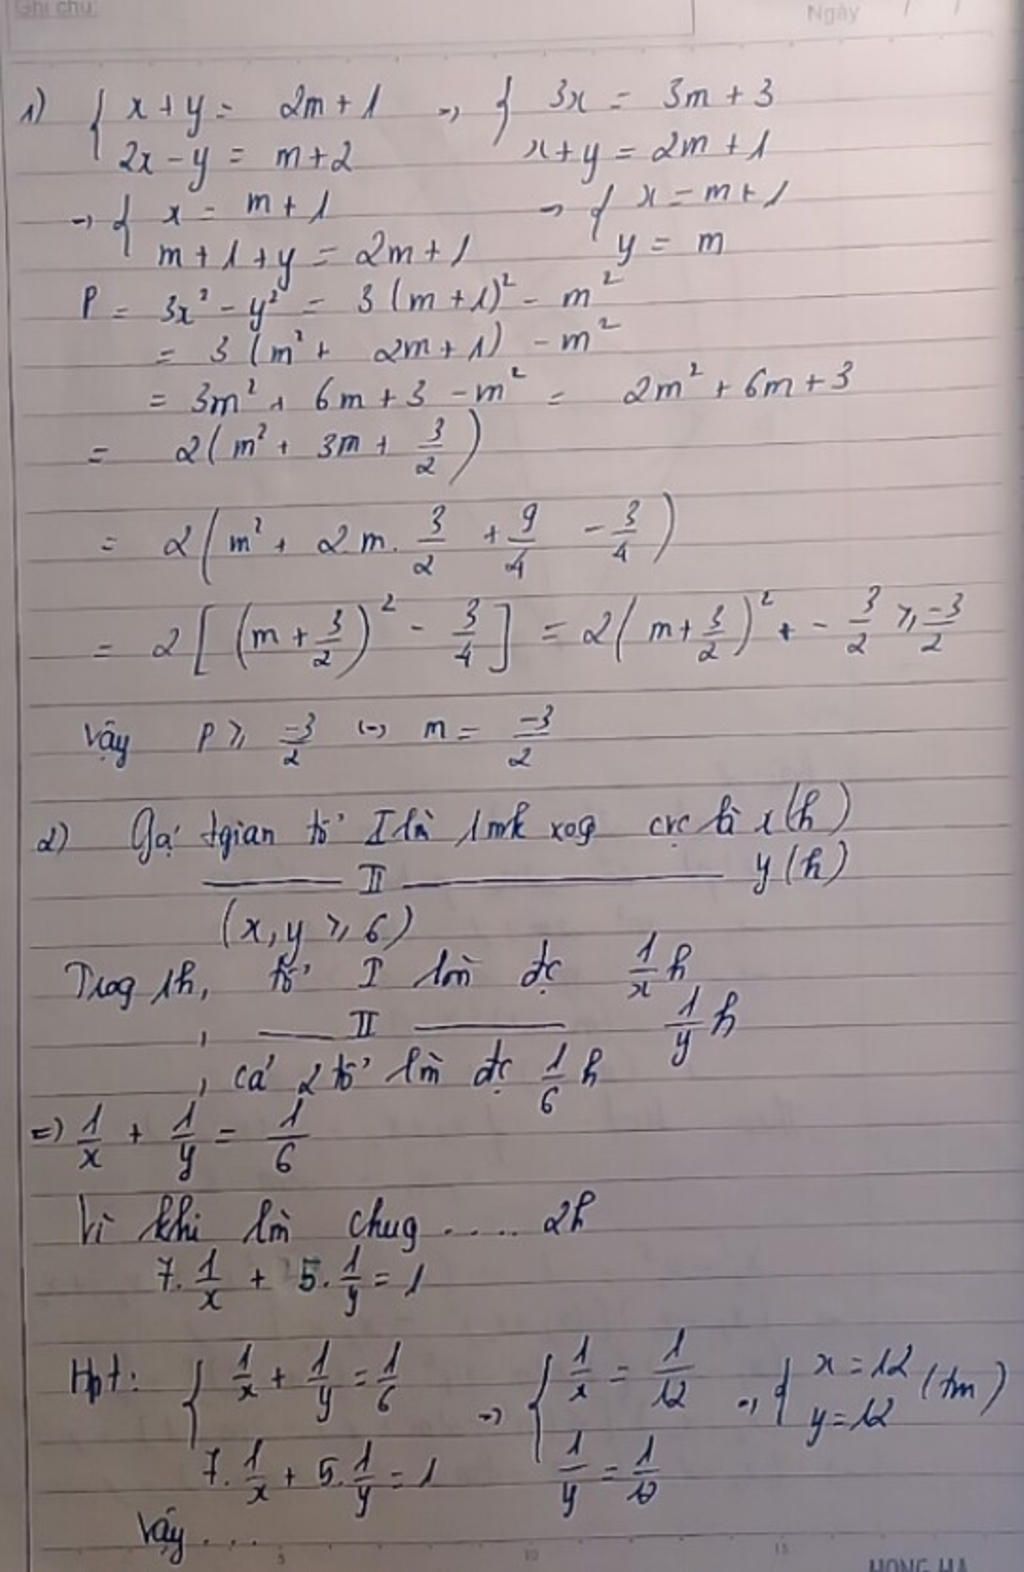 Ghi chú:
Ngày / /
1) { x + y = 2m + 1 → { 3x = 3m + 3
2x - y = m + 2 x + y = 2m + 1
→ { x = m + 1 → { x = m + 1
m + 1 + y = 2m + 1 y = m
P = 3x² - y² = 3(m + 1)² - m²
= 3(m² + 2m + 1) - m²
= 3m² + 6m + 3 - m² = 2m² + 6m + 3
= 2(m² + 3m + 3/2)
= 2(m² + 2m . 3/2 + 9/4 - 3/4)
= 2[(m + 3/2)² - 3/4] = 2(m + 3/2)² + - 3/2 ≥ -3/2
Vậy P ≥ -3/2 (-) m = -3/2
2) Gọi tgian tổ I làm 1mk xog cvc là x(h)
—— II —— y(h)
(x, y ≥ 6)
Trog 1h, tổ I làm đc 1/x h
, —— II —— 1/y h
, cả 2 tổ làm đc 1/6 h
=> 1/x + 1/y = 1/6
Vì khi làm chug ..... 2h
7. 1/x + 5. 1/y = 1
Hpt: { 1/x + 1/y = 1/6 → { 1/x = 1/12 → { x = 12 (tm)
7. 1/x + 5. 1/y = 1 1/y = 1/12 y = 12
Vậy ....
5 10 15
HONG HA